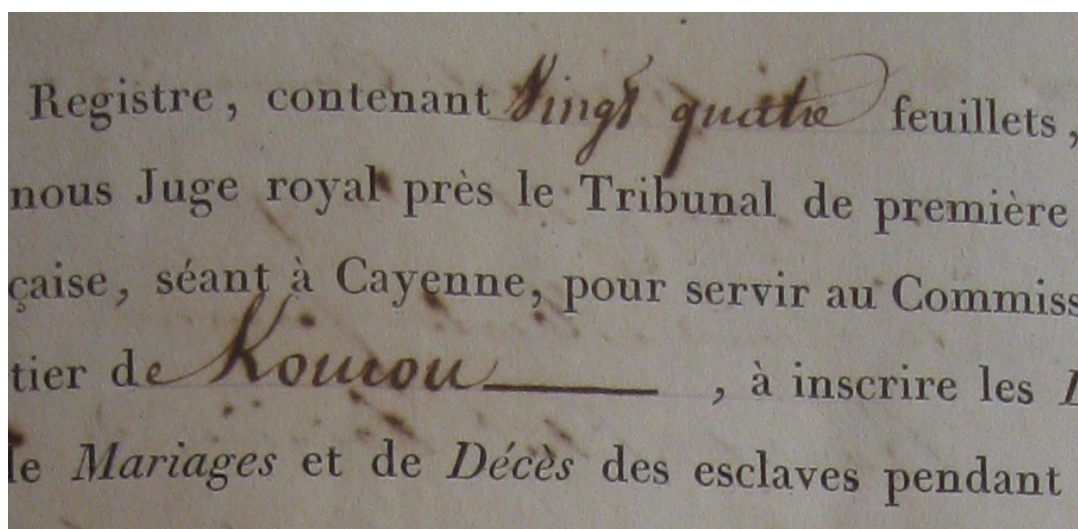 Registre, contenant Vingt quatre feuillets,
nous Juge royal près le Tribunal de première
çaise, séant à Cayenne, pour servir au Commiss
tier de Kourou , à inscrire les
le Mariages et de Décès des esclaves pendant